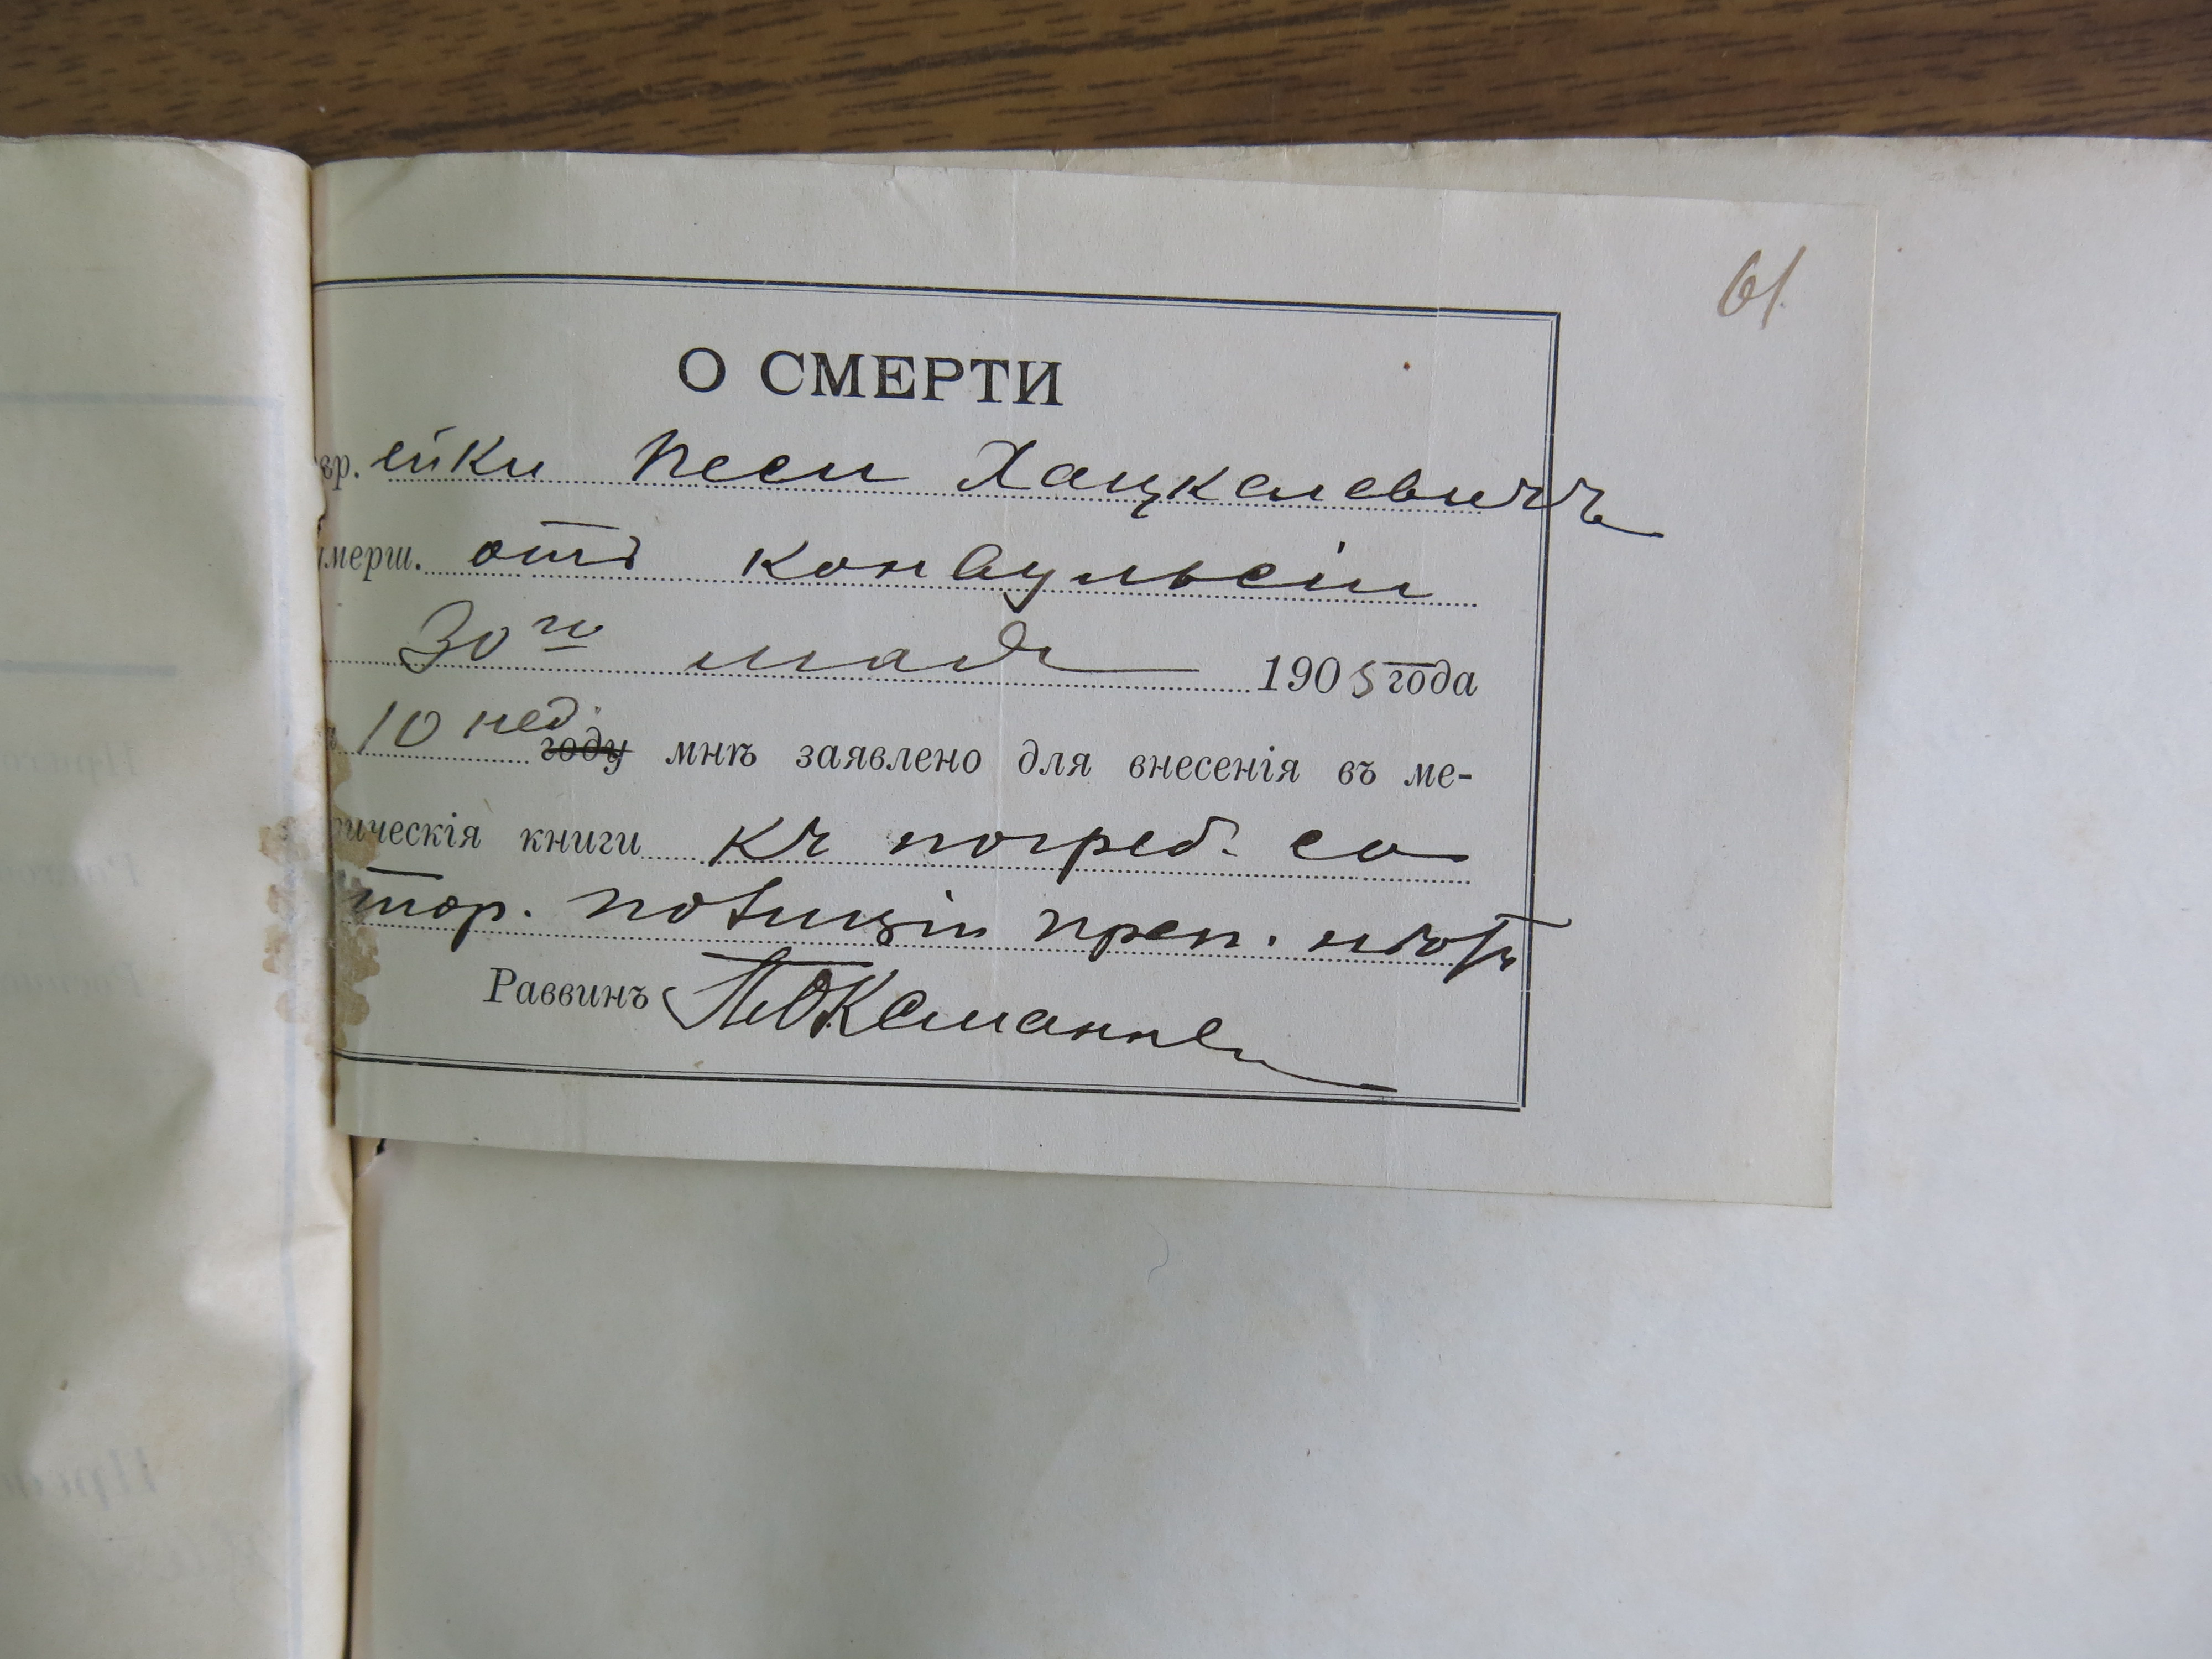 61
О СМЕРТИ
вр. ейки Песи Хацкелевичъ
умерш. отъ конвульсіи
30го мая 1905 года
10 нед. году мнѣ заявлено для внесенія въ ме-
рическія книги къ погреб. со
стор. полиціи преп. нѣтъ
Раввинъ